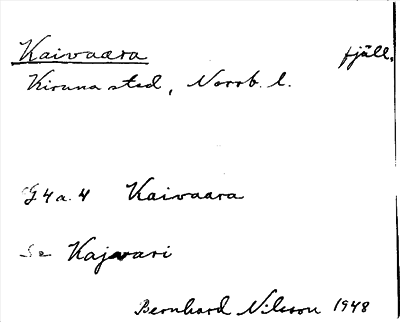 Kaivaara fjäll.
Kiruna stad, Norrb. l.
G4a.4 Kaivaara
Se Kajvari
Bernhard Nilsson 1948